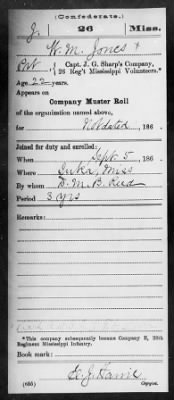 (Confederate.)
J. 26 Miss.
W. M. Jones
Pvt Capt. J. G. Sharp's Company,
26 Reg't Mississippi Volunteers.*
Age 22 years.
Appears on
Company Muster Roll
of the organization named above,
for Not dated, 186 .
Joined for duty and enrolled:
When Sept. 5, 186 .
Where Iuka, Miss
By whom D. M. B. Reid
Period 3 yrs
Remarks:
*This company subsequently became Company
Regiment Mississippi Infantry.
Book mark:
(655) Copyist.